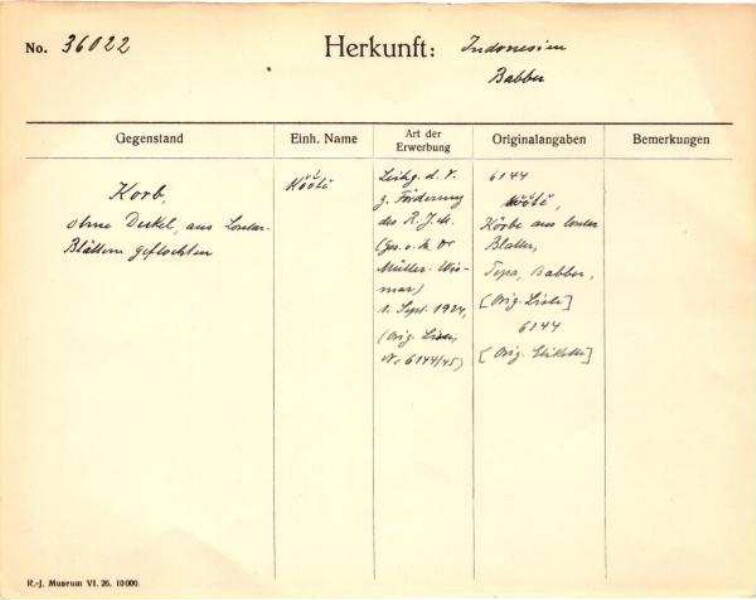 No. 36022 Herkunft: Indonesien
Babber
Gegenstand
Korb,
ohne Deckel, aus Lontar-
Blättern geflochten
Einh. Name
Art der
Erwerbung
Leihg. d. V.
z. Förderung
des R. J. M.
(Ges. v. H. Dr
Müller-Wis-
mar)
1. Sept. 1924,
(Orig. Listen,
Nr 6144/45)
Originalangaben
6144
Körbe aus lontar
Blatter,
Tepa, Babber,
[Orig. Liste]
6144
[Orig. Etikette]
Bemerkungen
R.-J. Museum VI. 26. 10000.